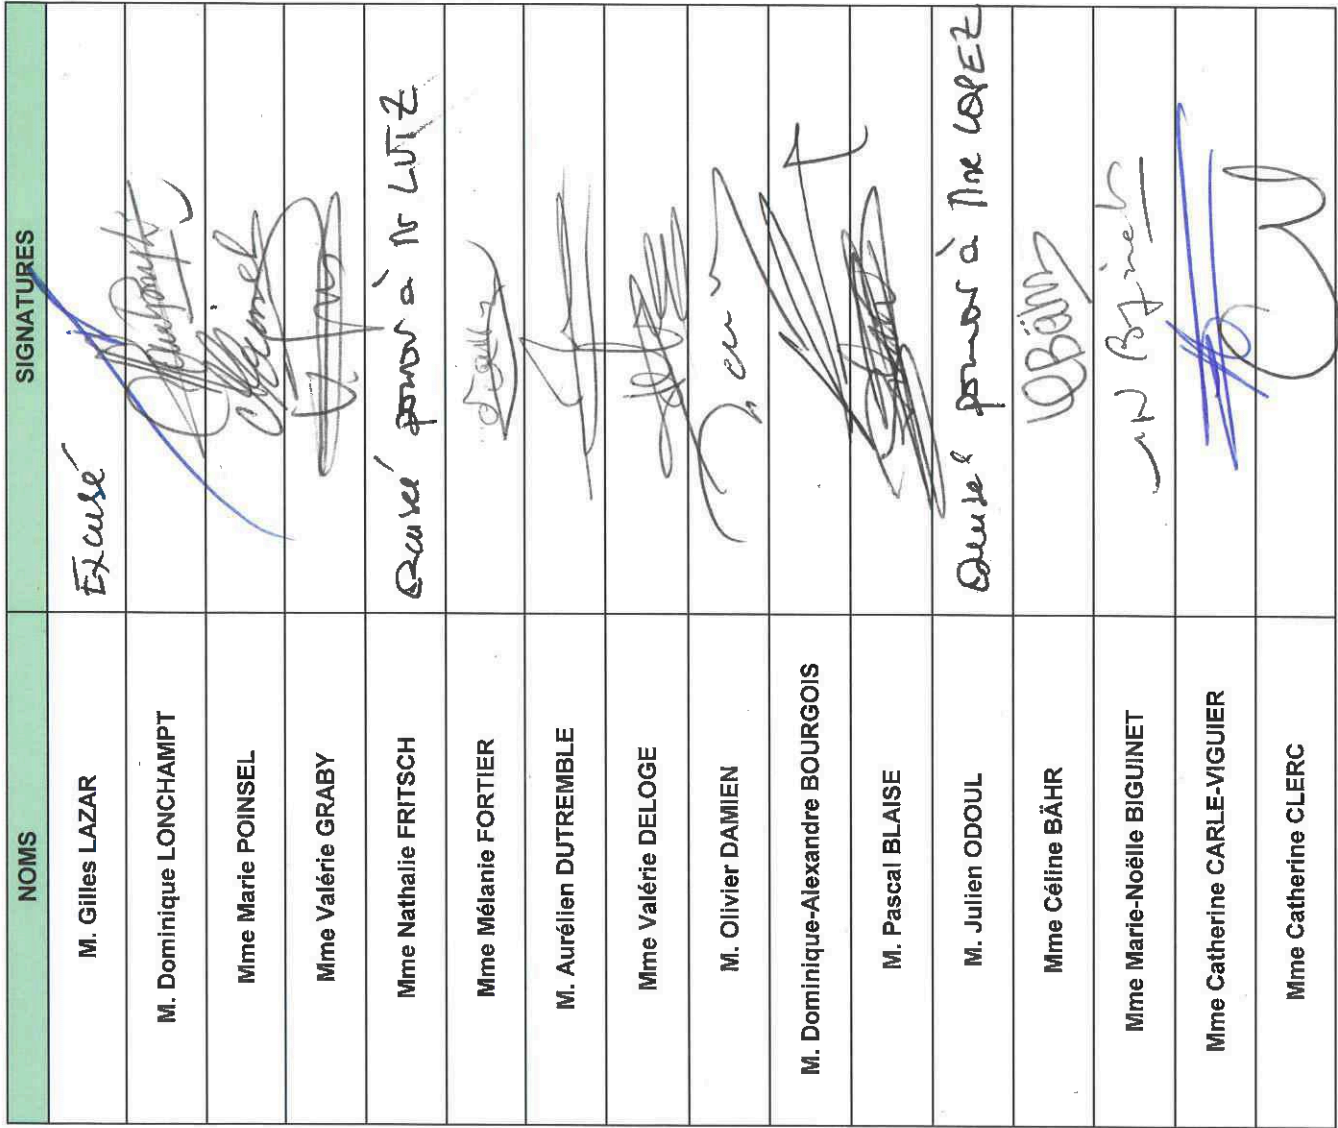 NOMS SIGNATURES
M. Gilles LAZAR Excusé
M. Dominique LONCHAMPT
Mme Marie POINSEL
Mme Valérie GRABY
Mme Nathalie FRITSCH Excusé pouvoir à Mr LUTZ
Mme Mélanie FORTIER
M. Aurélien DUTREMBLE
Mme Valérie DELOGE
M. Olivier DAMIEN
M. Dominique-Alexandre BOURGOIS
M. Pascal BLAISE
M. Julien ODOUL Excusé pouvoir à Mme LOPEZ
Mme Céline BÄHR Bähr
Mme Marie-Noëlle BIGUINET
Mme Catherine CARLE-VIGUIER
Mme Catherine CLERC